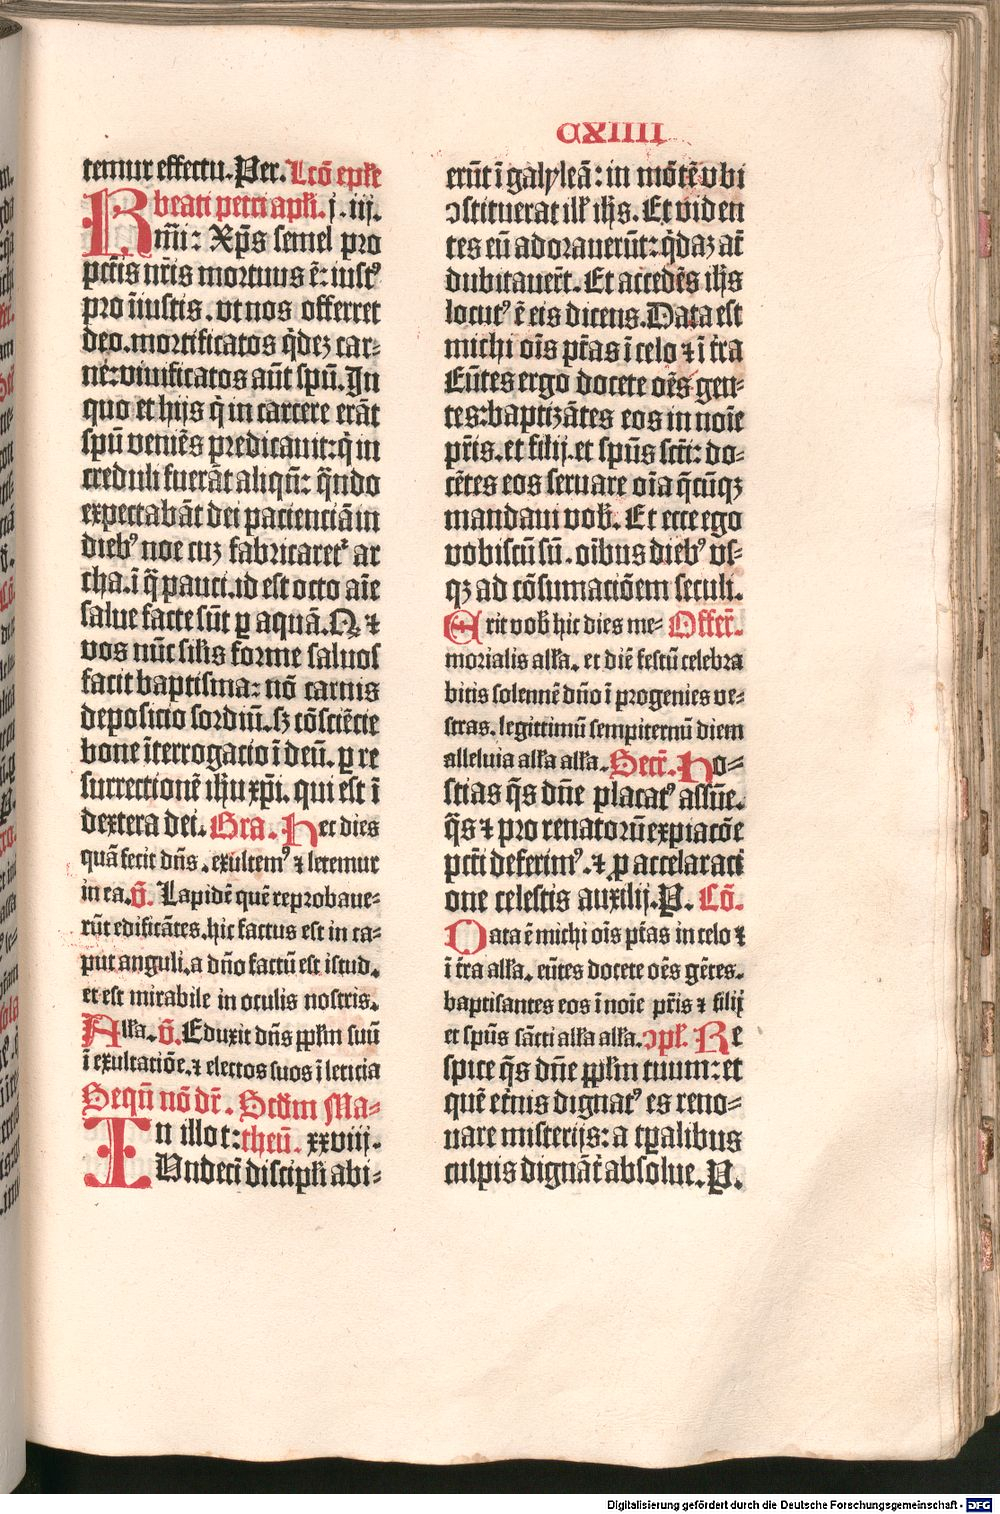 CXIIII
temur effectu. Per. Lcō ep̄le
beati petri apl̄i. j. iij.
Kr̄mi: Xp̄s semel pro
pctīs nr̄is mortuus ē: iustꝰ
pro iniustis. vt nos offerret
deo. mortificatos q̄dez car⸗
ne: viuificatos aūt spū. In
quo et hijs q̄ in carcere erāt
spū veniēs predicauit: q̄ in
creduli fuerāt aliqn̄: q̄ndo
expectabāt dei pacienciā in
diebꝰ noe cuz fabricaret᷑ ar
cha. ī q̄ pauci. id est octo aīe
salue facte sūt ꝑ aquā. Q ⁊
vos nūc sīlis forme saluos
facit baptisma: nō carnis
depositio sordiū. sꝫ cōsciēcie
bone īterrogacio ī deū. ꝑ re
surrectionē ih̄u xp̄i. qui est ī
dextera dei. Gra. Hec dies
quā fecit dn̄s. exultemꝰ ⁊ letemur
in ea. v̄. Lapidē quē reprobaue⸗
rūt edificātes. hic factus est in ca⸗
put anguli. a dn̄o factū est istud.
et est mirabile in oculis nostris.
All̄a. v̄. Eduxit dn̄s ppl̄m suū
ī exultatiōe. ⁊ electos suos ī leticia
Seqū nō dr̄. Scd̄m Ma⸗
In illo t: theū. xxviij.
Vndeci discipl̄i abi⸗
erūt ī galyleā: in mōtē vbi
ↄstituerat ill̄ ih̄s. Et viden
tes eū adorauerūt: q̄daz at̄
dubitauer̄t. Et accedēs ih̄s
locutꝰ ē eis dicens. Data est
michi oīs ptās ī celo ⁊ ī tr̄a
Eūtes ergo docete oēs gen⸗
tes: baptizātes eos in noīe
pr̄is. et filij. et spūs scti: do⸗
cētes eos seruare oīa q̄cūqꝫ
mandaui vob̄. Et ecce ego
vobiscū sū. oībus diebꝰ vs⸗
qꝫ ad cōsumaciōem seculi.
Erit vob̄ hic dies me⸗ Offer̄.
morialis all̄a. et diē festū celebra
bitis solennē dn̄o ī progenies ve⸗
stras. legittimū sempiternū diem
alleluia all̄a all̄a. Secr̄. Ho⸗
stias q̄s dn̄e placatꝰ assūe.
q̄s ⁊ pro renatorū expiacōe
pcti deferimꝰ. ⁊ ꝓ accelaraci
one celestis auxilij. P. Cō.
Data ē michi oīs ptās in celo ⁊
ī tr̄a all̄a. eūtes docete oēs gētes.
baptisantes eos ī noīe pr̄is ⁊ filij
et spūs sācti all̄a all̄a. ↄpl̄. Re
spice q̄s dn̄e ppl̄m tuum: et
quē et̄nis dignatꝰ es reno⸗
uare misterijs: a tꝑalibus
culpis dignāt̄ absolue. P.
Digitalisierung gefördert durch die Deutsche Forschungsgemeinschaft - DFG